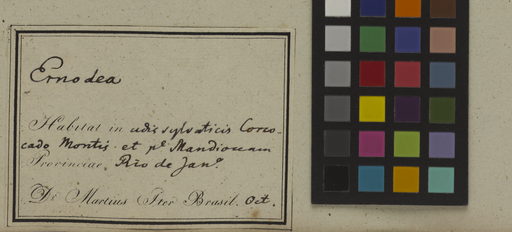 Ernodea
Habitat in udis sylvaticis Corco-
cado Montis et pr. Mandioccam
Provinciae, Rio de Jano.
Dr Martius Iter Brasil. Oct.